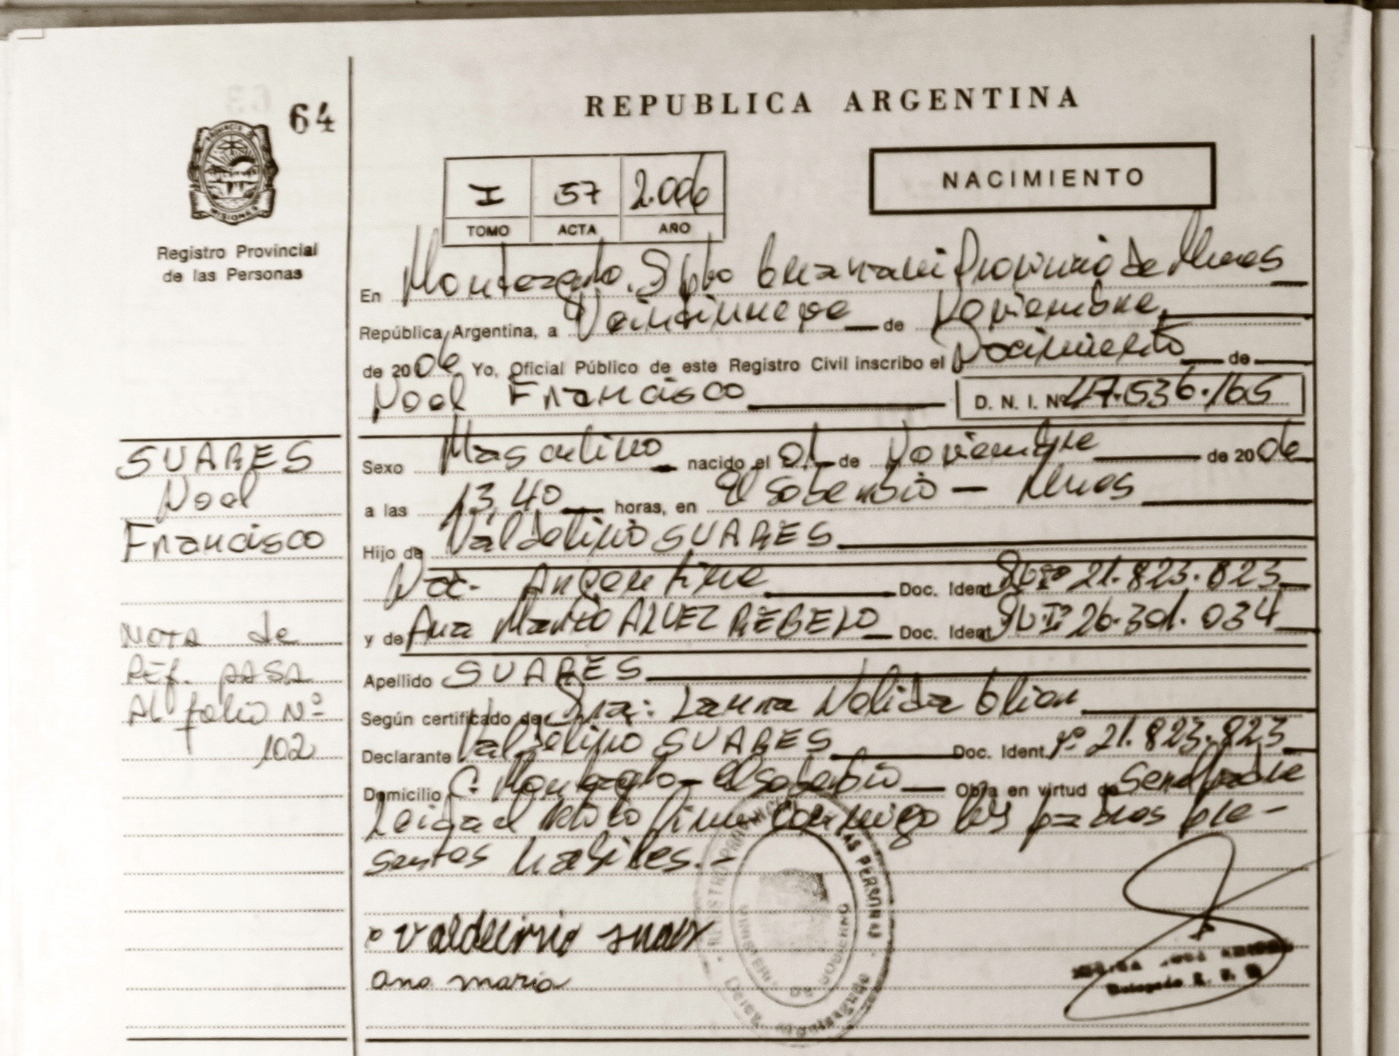 64
REPUBLICA ARGENTINA
PROVINCIA DE MISIONES
Registro Provincial
de las Personas
I 57 2.006
TOMO ACTA AÑO
NACIMIENTO
En Provincia de Mnes
República Argentina, a Veintinueve de Noviembre,
de 2006 Yo, Oficial Público de este Registro Civil inscribo el Nacimiento de
Noel Francisco D. N. I. Nº 47.536.165
SUARES
Noel
Francisco
Nota de
Ref. pasa
Al folio Nº
102
Sexo Masculino nacido el 01 de Noviembre de 2006
a las 13,40 horas, en El Soberbio – Mnes
Hijo de Valdelirio SUARES
Nac. Argentina Doc. Ident. DNIº 21.823.823
y de Ana María ALVEZ REBELO Doc. Ident. DNIº 26.301.034
Apellido SUARES
Según certificado de Dra: Laura Nelida
Declarante Valdelirio SUARES Doc. Ident. Nº 21.823.823
Domicilio El Soberbio Obra en virtud de Ser el padre
Leida el Acta firman conmigo los padres pre-
sentes habiles.-
Valdelirio suares
ana maria